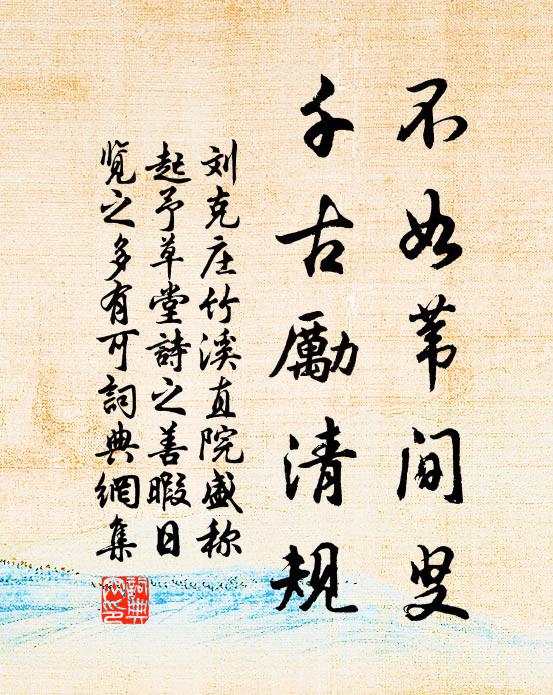 不如苇间叟
千古励清规
刘克庄竹溪直院盛称
起予草堂詩之善暇日
览之多有可詞典網集